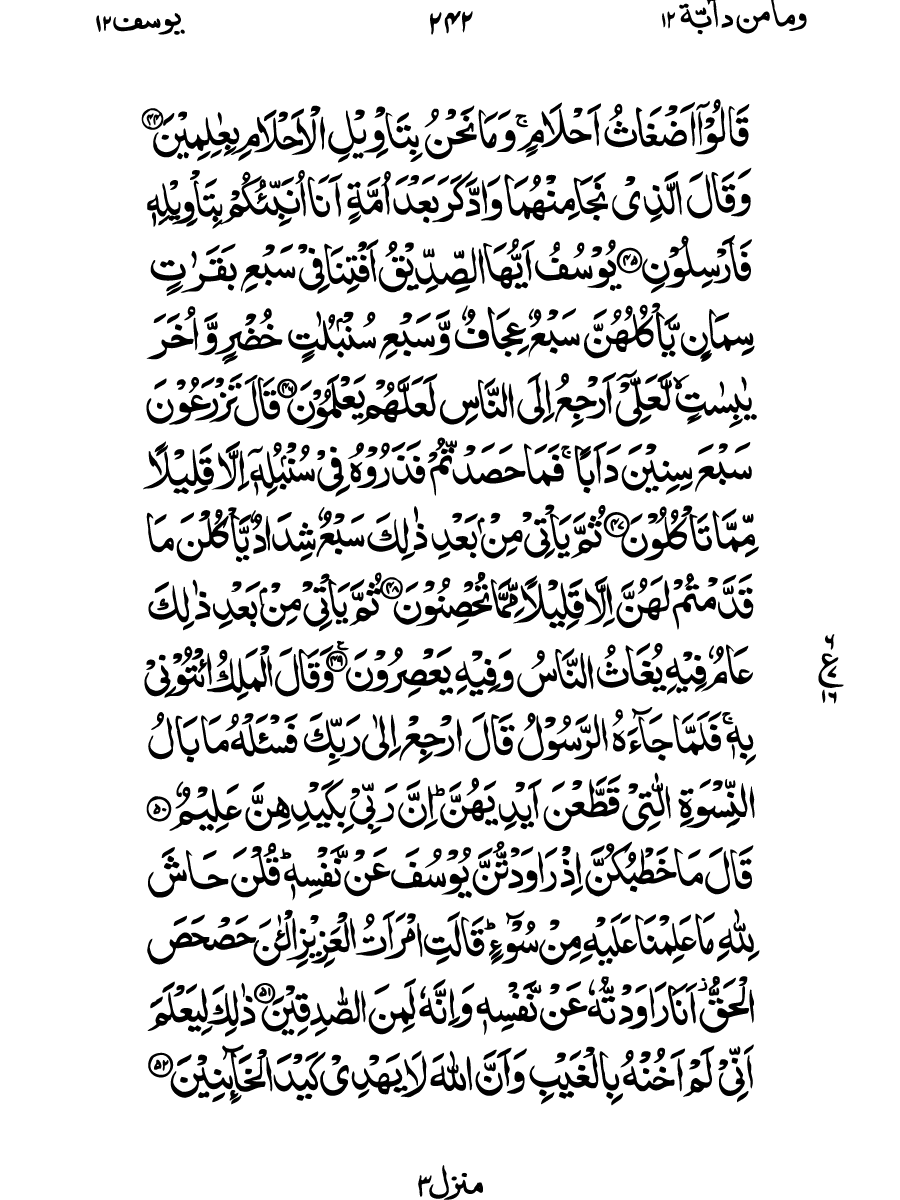 ومامن دآبّة ١٢ ٢٤٢ يوسف ١٢
قَالُوْۤا اَضْغَاثُ اَحْلَامٍ ۚ وَمَا نَحْنُ بِتَاْوِيْلِ الْاَحْلَامِ بِعٰلِمِيْنَ ﴿۴۴﴾
وَقَالَ الَّذِىْ نَجَا مِنْهُمَا وَادَّكَرَ بَعْدَ اُمَّةٍ اَنَا اُنَبِّئُكُمْ بِتَاْوِيْلِهٖ
فَاَرْسِلُوْنِ ﴿۴۵﴾ يُوْسُفُ اَيُّهَا الصِّدِّيْقُ اَفْتِنَا فِىْ سَبْعِ بَقَرٰتٍ
سِمَانٍ يَّاْكُلُهُنَّ سَبْعٌ عِجَافٌ وَّسَبْعِ سُنْۢبُلٰتٍ خُضْرٍ وَّاُخَرَ
يٰبِسٰتٍ ۙ لَّعَلِّىْۤ اَرْجِعُ اِلَى النَّاسِ لَعَلَّهُمْ يَعْلَمُوْنَ ﴿۴۶﴾ قَالَ تَزْرَعُوْنَ
سَبْعَ سِنِيْنَ دَاَبًا ۚ فَمَا حَصَدْتُّمْ فَذَرُوْهُ فِىْ سُنْۢبُلِهٖۤ اِلَّا قَلِيْلًا
مِّمَّا تَاْكُلُوْنَ ﴿۴۷﴾ ثُمَّ يَاْتِىْ مِنْۢ بَعْدِ ذٰلِكَ سَبْعٌ شِدَادٌ يَّاْكُلْنَ مَا
قَدَّمْتُمْ لَهُنَّ اِلَّا قَلِيْلًا مِّمَّا تُحْصِنُوْنَ ﴿۴۸﴾ ثُمَّ يَاْتِىْ مِنْۢ بَعْدِ ذٰلِكَ
عَامٌ فِيْهِ يُغَاثُ النَّاسُ وَفِيْهِ يَعْصِرُوْنَ ﴿۴۹﴾ۧ وَقَالَ الْمَلِكُ ائْتُوْنِىْ
٦ ع ٧ ١٦
بِهٖ ۚ فَلَمَّا جَآءَهُ الرَّسُوْلُ قَالَ ارْجِعْ اِلٰى رَبِّكَ فَسْـَٔلْهُ مَا بَالُ
النِّسْوَةِ الّٰتِىْ قَطَّعْنَ اَيْدِيَهُنَّ ؕ اِنَّ رَبِّىْ بِكَيْدِهِنَّ عَلِيْمٌ ﴿۵۰﴾
قَالَ مَا خَطْبُكُنَّ اِذْ رَاوَدْتُّنَّ يُوْسُفَ عَنْ نَّفْسِهٖ ؕ قُلْنَ حَاشَ
لِلّٰهِ مَا عَلِمْنَا عَلَيْهِ مِنْ سُوْٓءٍ ؕ قَالَتِ امْرَاَتُ الْعَزِيْزِ الْـٰٔنَ حَصْحَصَ
الْحَقُّ ۫ اَنَا رَاوَدْتُّهٗ عَنْ نَّفْسِهٖ وَاِنَّهٗ لَمِنَ الصّٰدِقِيْنَ ﴿۵۱﴾ ذٰلِكَ لِيَعْلَمَ
اَنِّىْ لَمْ اَخُنْهُ بِالْغَيْبِ وَاَنَّ اللّٰهَ لَا يَهْدِىْ كَيْدَ الْخَآئِنِيْنَ ﴿۵۲﴾
منزل ٣